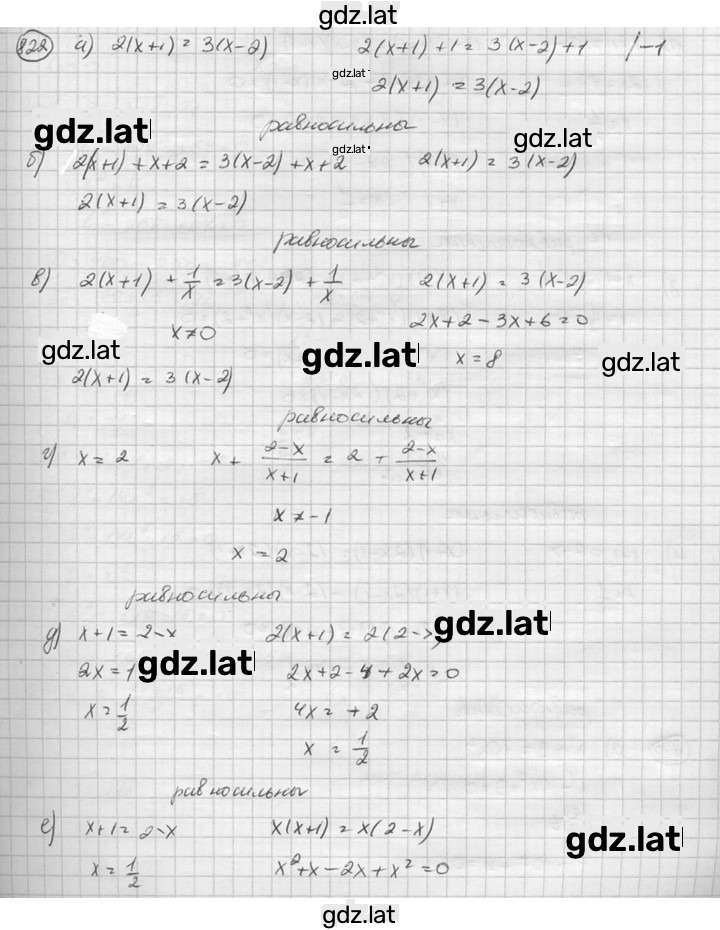 gdz.lat
822 а) 2(x+1) = 3(x-2) 2(x+1)+1 = 3(x-2)+1 /-1
gdz.lat 2(x+1) = 3(x-2)
gdz.lat равносильны gdz.lat
gdz.lat
б) 2(x+1)+x+2 = 3(x-2)+x+2 2(x+1) = 3(x-2)
2(x+1) = 3(x-2)
равносильны
в) 2(x+1) + 1/x = 3(x-2) + 1/x 2(x+1) = 3(x-2)
x≠0 2x+2-3x+6=0
gdz.lat gdz.lat x=8 gdz.lat
2(x+1) = 3(x-2)
равносильны
г) x=2 x + (2-x)/(x+1) = 2 + (2-x)/(x+1)
x≠-1
x = 2
равносильны
д) x+1=2-x 2(x+1) = 2(2-x) gdz.lat
2x=1 gdz.lat 2x+2-4+2x=0
x=1/2 4x=+2
x = 1/2
равносильны
е) x+1=2-x x(x+1) = x(2-x) gdz.lat
x=1/2 x²+x-2x+x²=0
gdz.lat